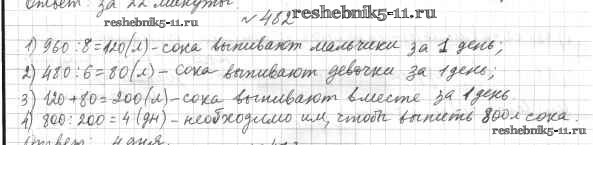 Ответ: за 22 минуты.
№482 reshebnik5-11.ru
1) 960:8=120(л)-сока выпивают мальчики за 1 день;
2) 480:6=80(л)-сока выпивают девочки за 1 день;
3) 120+80=200(л)-сока выпивают вместе за 1 день.
4) 800:200=4(дн)-необходимо им, чтобы выпить 800л сока.
reshebnik5-11.ru
Ответ: 4 дня.